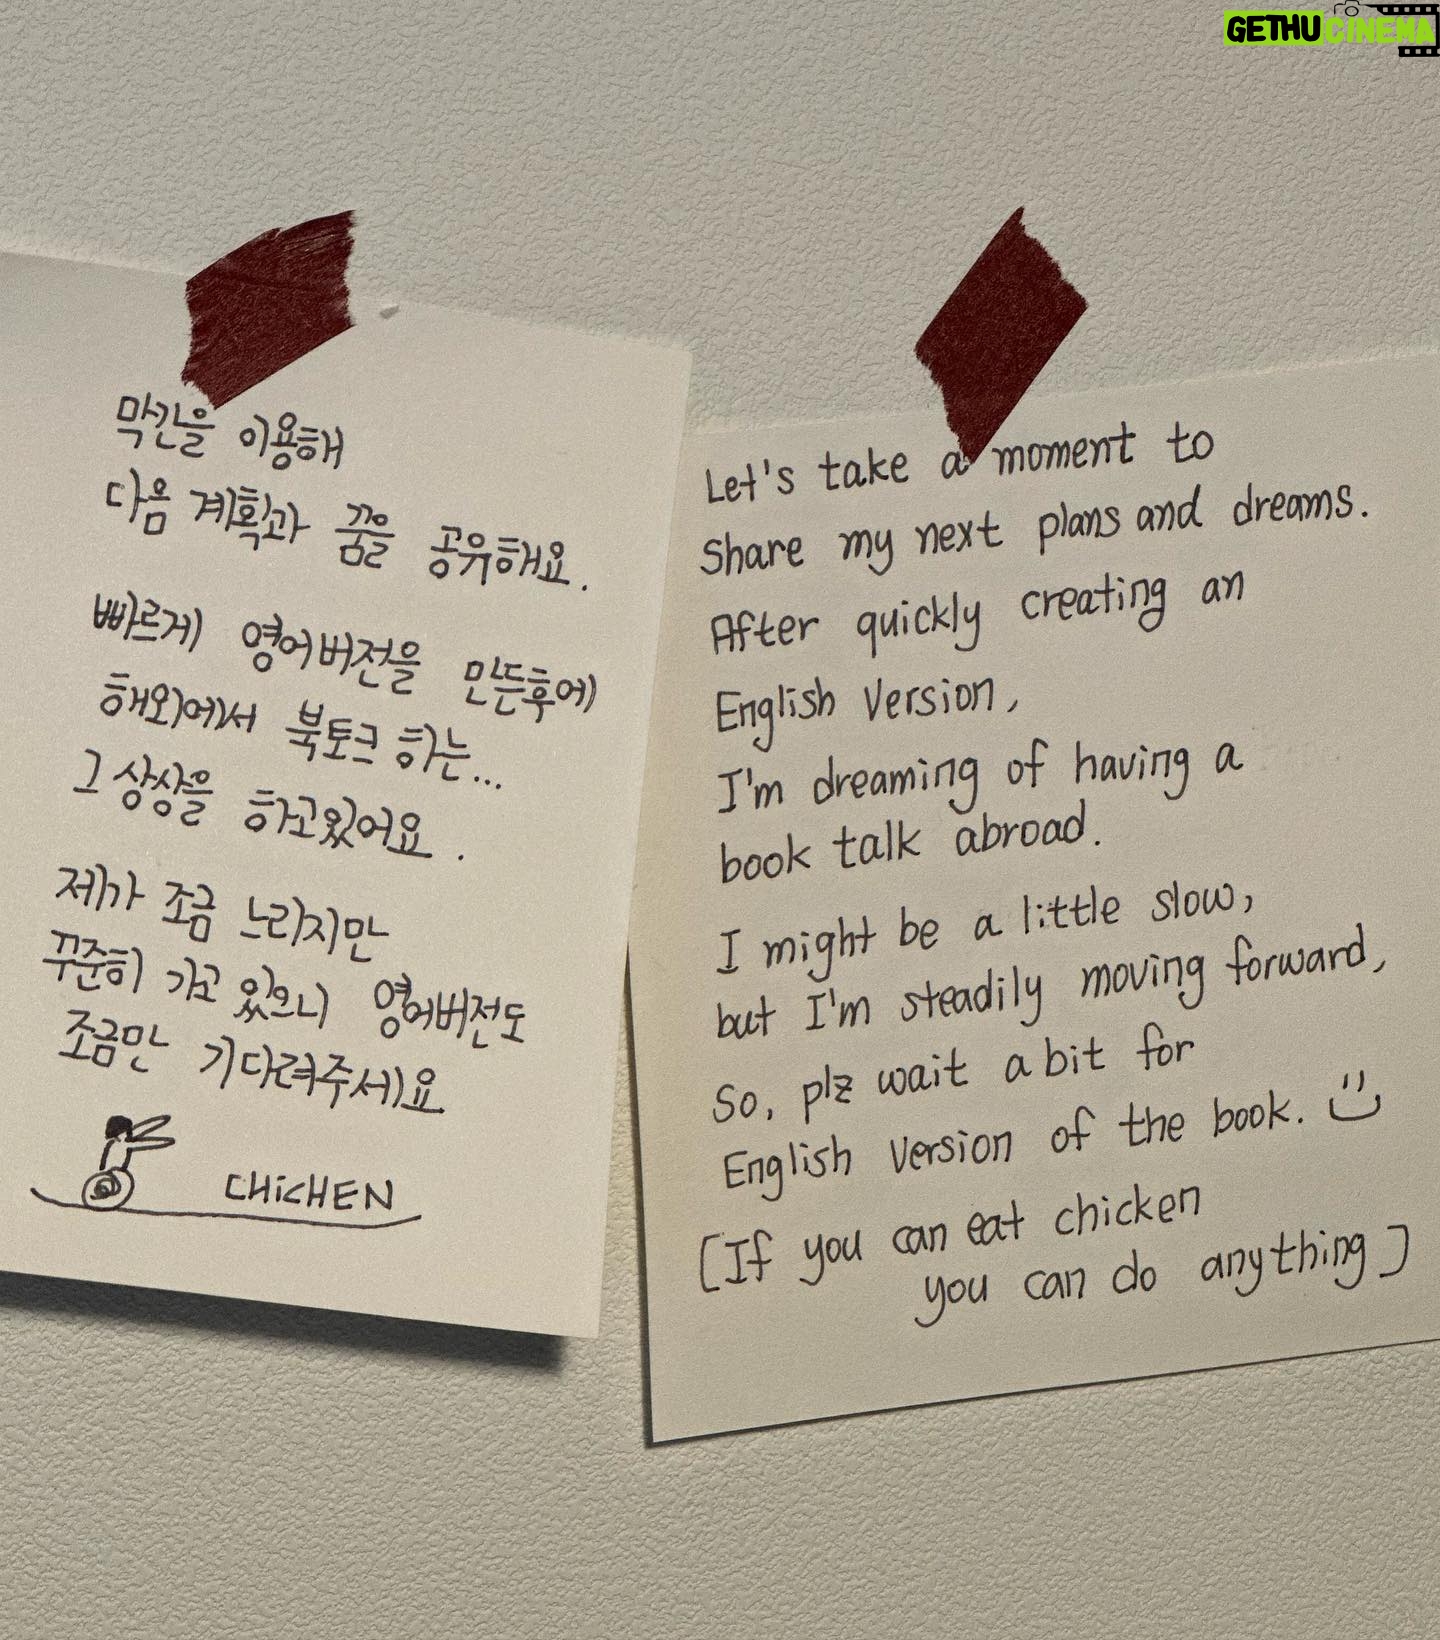 GETHU CINEMA
막간을 이용해
다음 계획과 꿈을 공유해요.
빠르게 영어버전을 만든후에
해외에서 북토크 하는...
그 상상을 하고있어요.
제가 조금 느리지만
꾸준히 가고 있으니 영어버전도
조금만 기다려주세요
CHiCHEN
Let's take a moment to
Share my next plans and dreams.
After quickly creating an
English Version,
I'm dreaming of having a
book talk abroad.
I might be a little slow,
but I'm steadily moving forward,
So, plz wait a bit for
English Version of the book.
[If you can eat chicken
you can do anything]